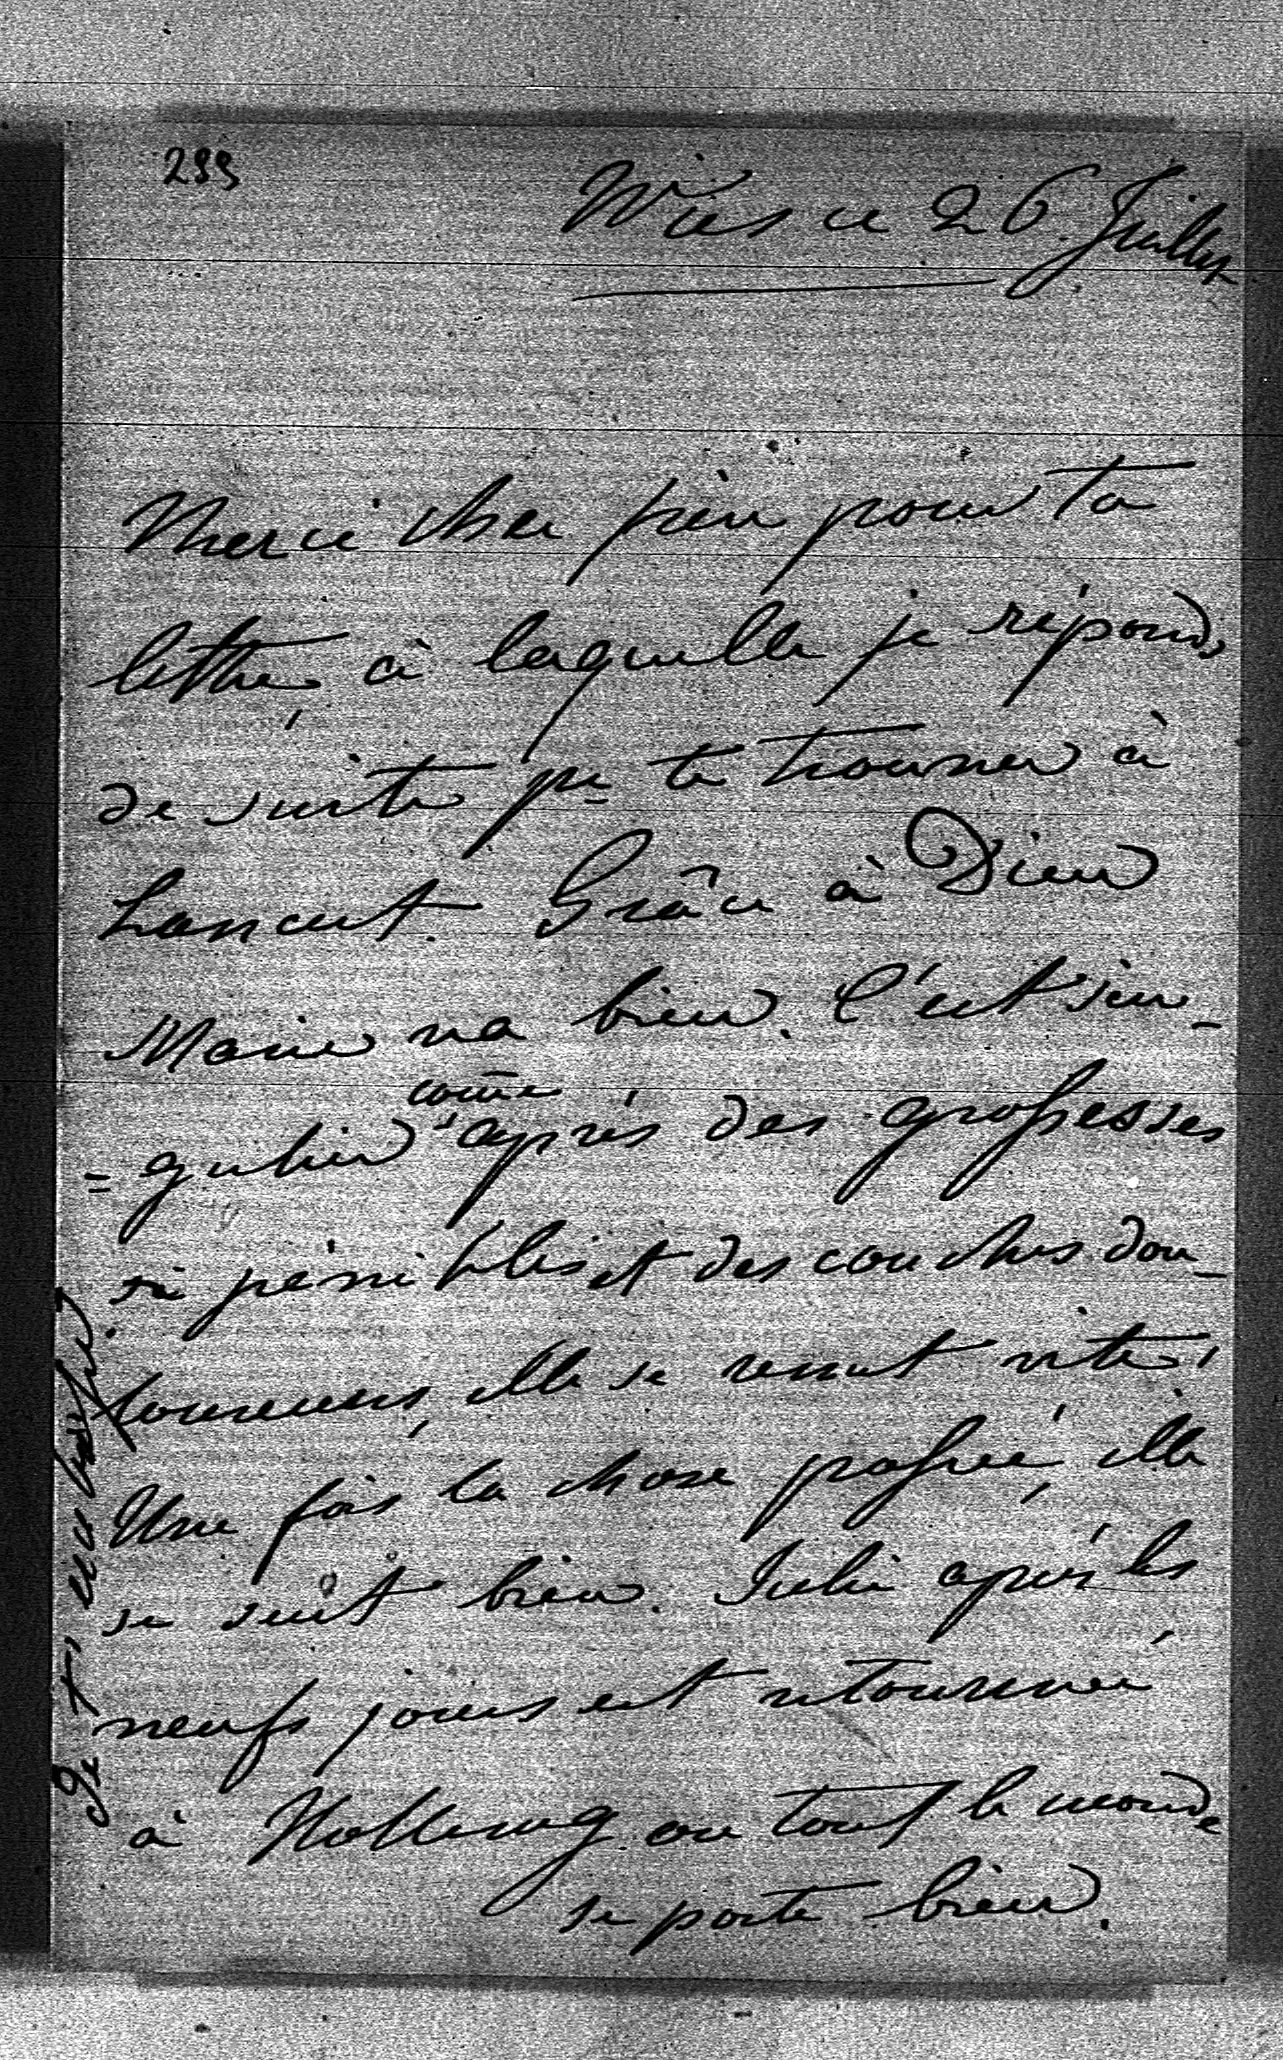 299
Wies ce 26 Juillet
Merci cher frère pour ta
lettre à laquelle je réponds
de suite pr te trouver à
Lancut. Grâce à Dieu
Marie va bien. C'est sin-
=gulier come après des grossesses
si pénibles et des couches dou-
loureuses, elle se remet vite!
Une fois la chose passée, elle
se suit bien. Julie après les
neufs jours est retournée
à Hollenegg où tout le monde
se porte bien.
Je t'